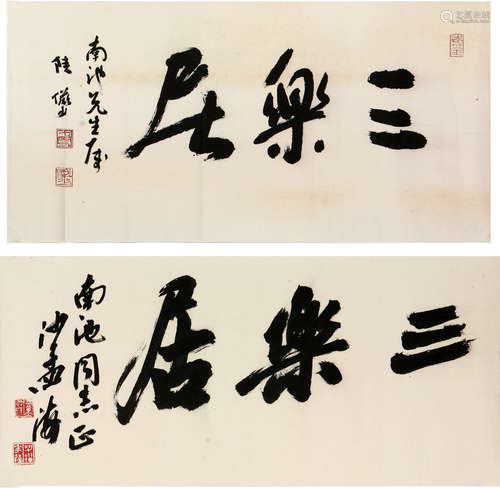 三樂居
南池先生屬
陸儼少
三樂居
南池同志正
沙孟海